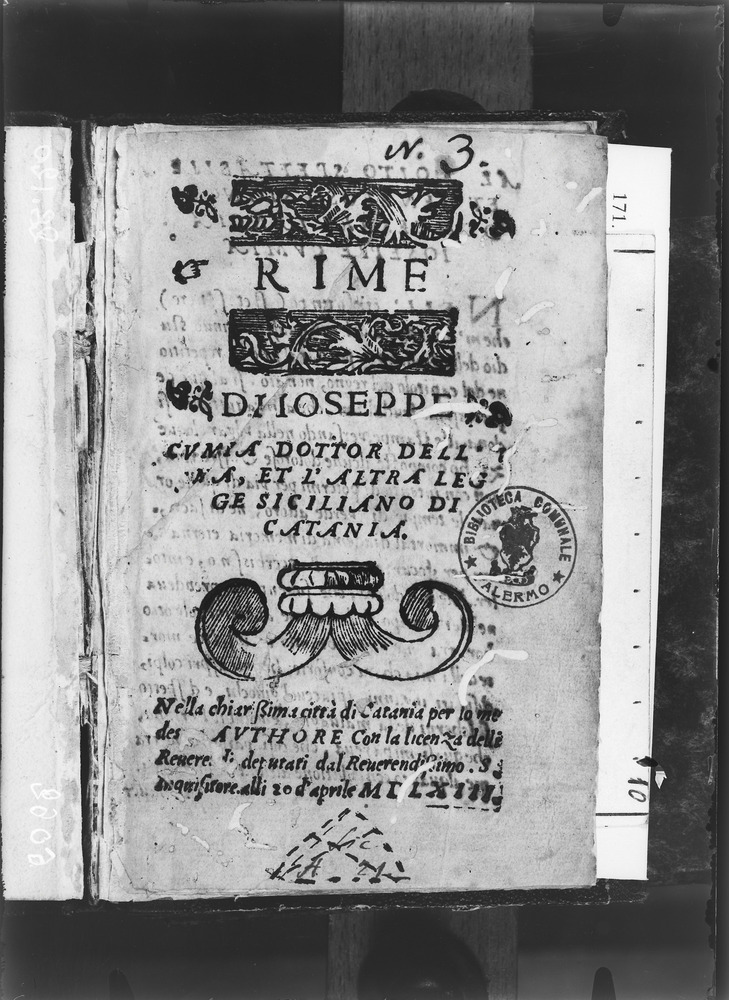 N. 3.
RIME
DI IOSEPPE
CVMIA DOTTOR DELL'
NA, ET L'ALTRA LEG
GE SICILIANO DI
CATANIA.
BIBLIOTECA COMUNALE
ALERMO
Nella chiarissima città di Catania per lo me
des AVTHORE Con la licenza delli
Revere deputati dal Reverendissimo. S.
Inquisitore. alli 20 d'aprile
171.
10